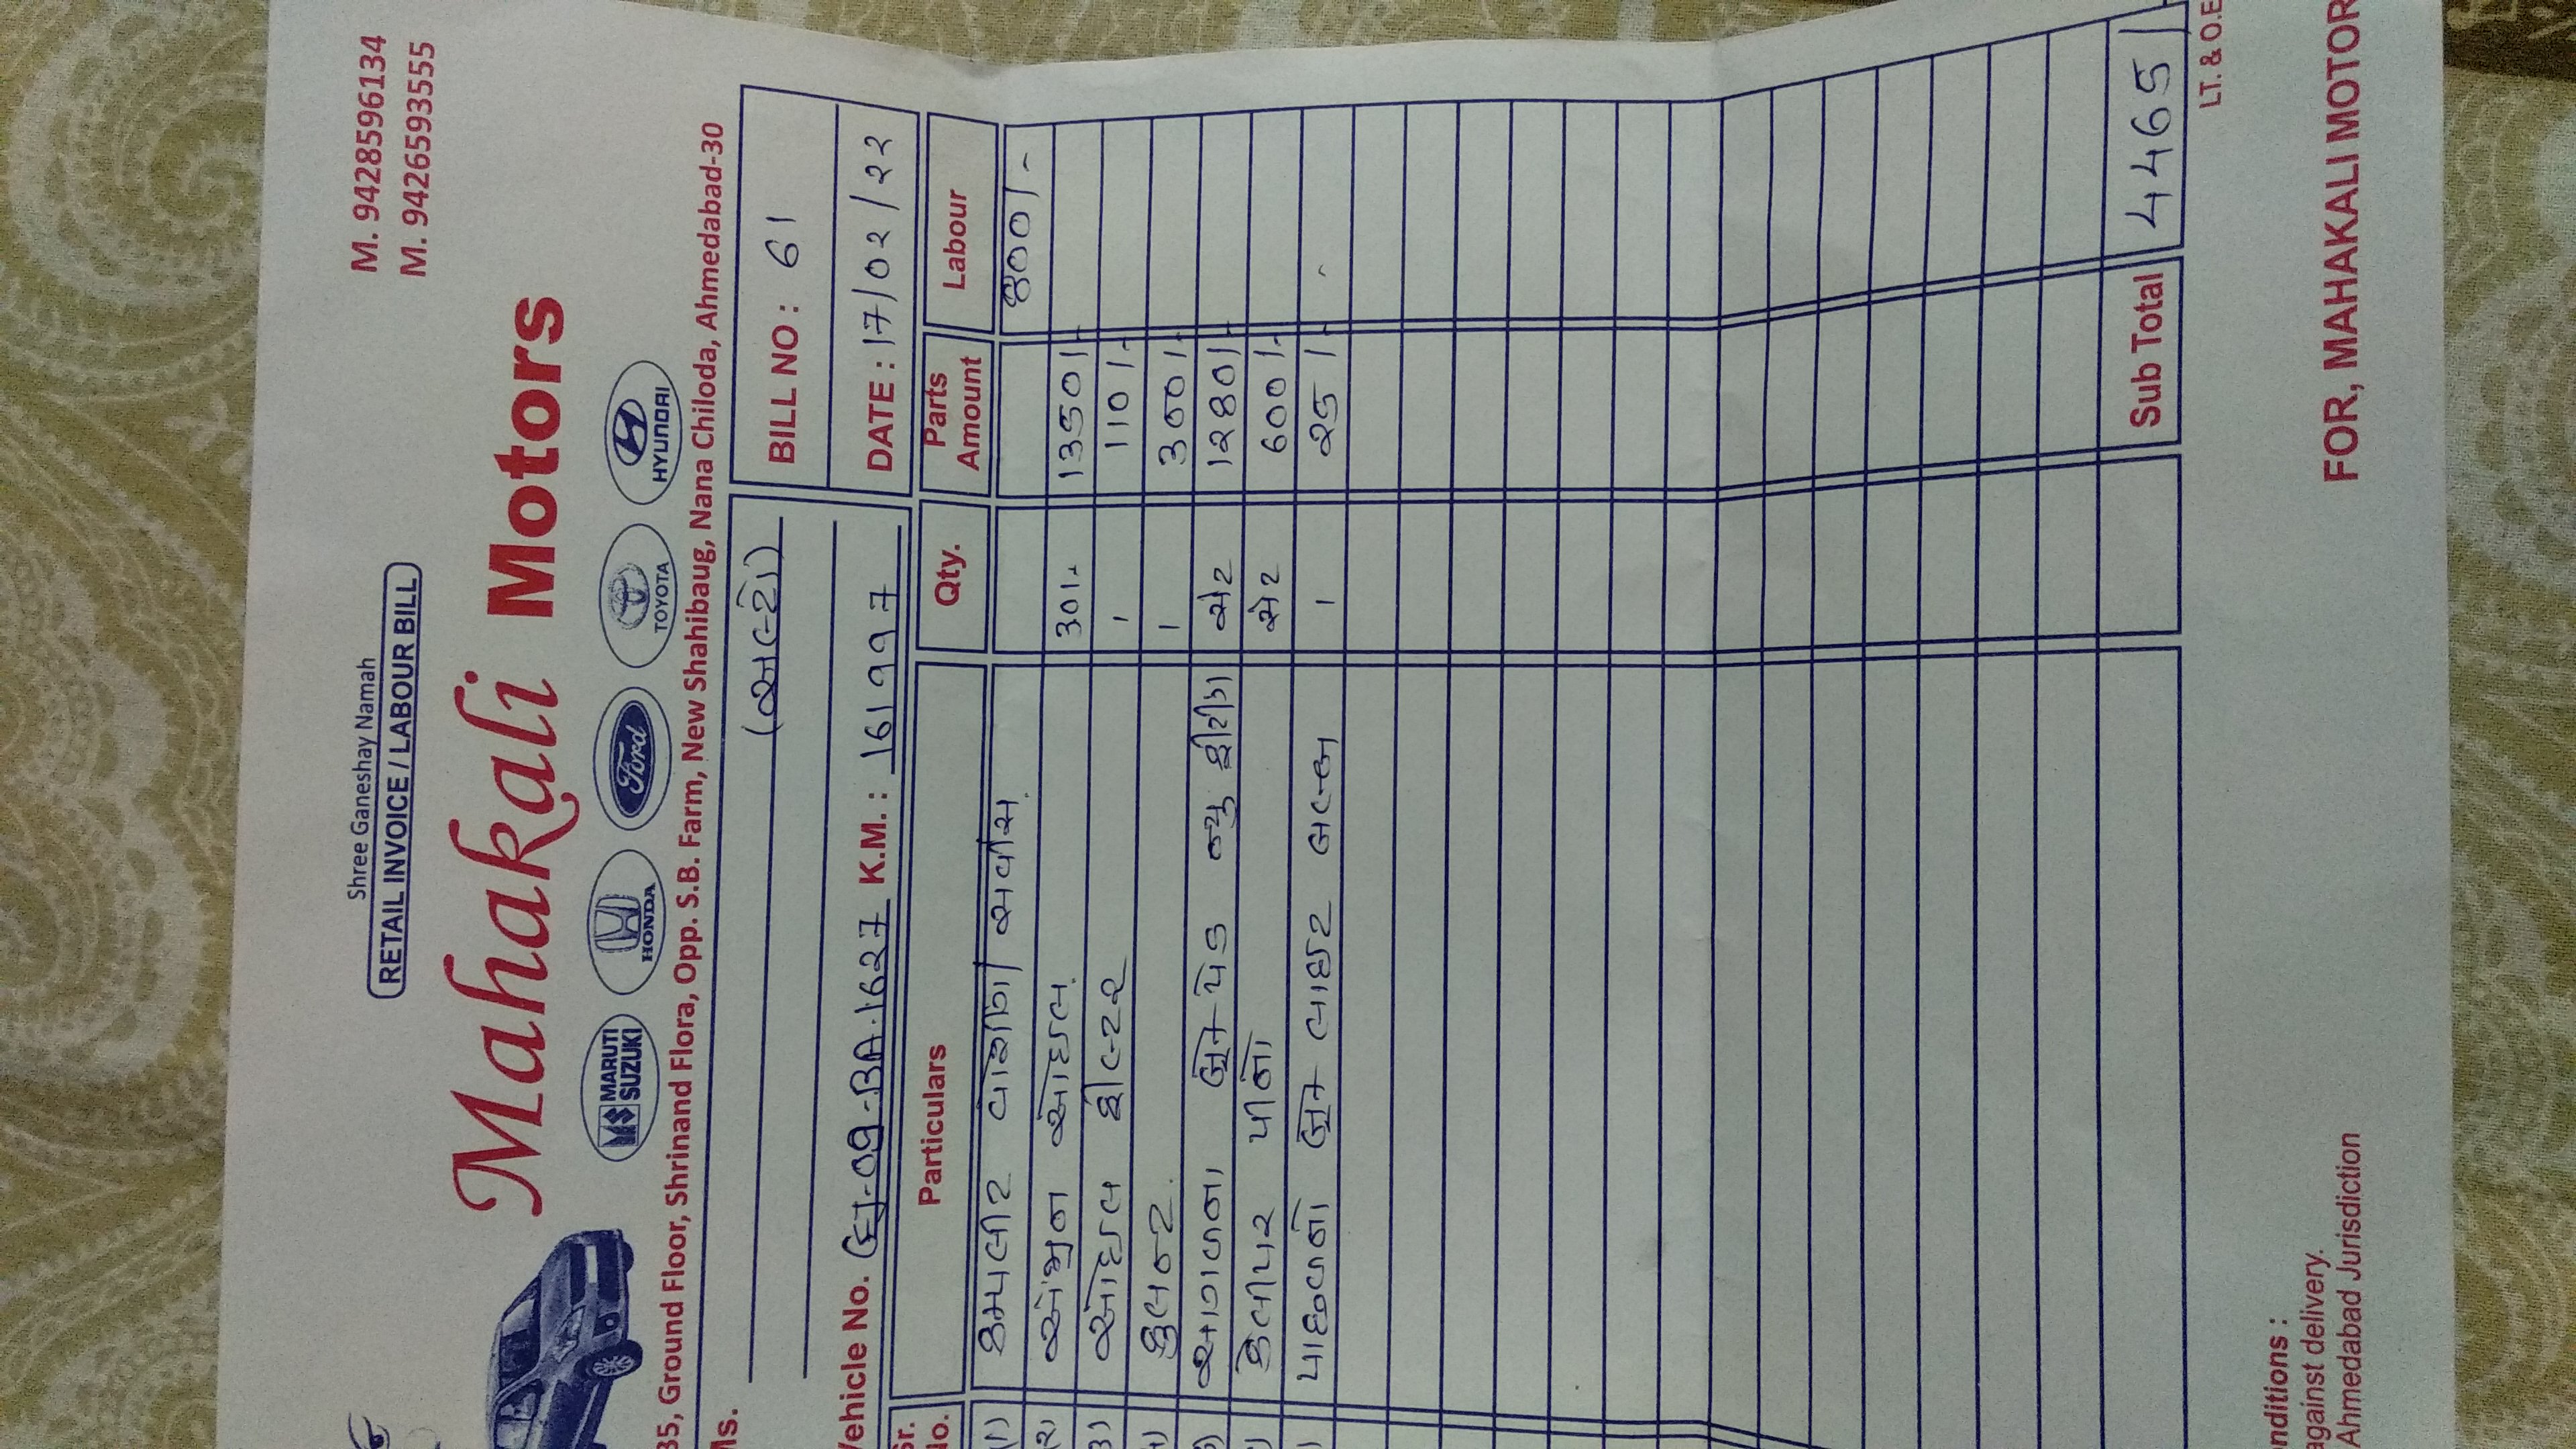 Shree Ganeshay Namah
RETAIL INVOICE / LABOUR BILL
M. 9428596134
M. 9426593555
Mahakali Motors
MARUTI SUZUKI HONDA Ford TOYOTA HYUNDAI
35, Ground Floor, Shrinand Flora, Opp. S.B. Farm, New Shahibaug, Nana Chiloda, Ahmedabad-30
Ms. (અલ્ટો)
BILL NO : 61
Vehicle No. GJ-09-BA.1627 K.M. : 161997
DATE : 17/02/22
Sr. No. Particulars Qty. Parts Amount Labour
(1) કમ્પલીટ વોશીંગ/ સર્વીસ 800/-
(૨) એંજીન ઓઇલ 1350/-
3) ઓઇલ ફીલ્ટર 1 110/-
કુલન્ટ 1 300/-
આગળના બ્રેક પેડ ન્યુ ફીટીંગ સેટ 1280/-
કેલીપર પીનો સેટ 600/-
પાછળનો બ્રેક લાઇટ બલ્બ 1 25/-
Sub Total 4465/-
LT. & O.E
onditions :
against delivery.
Ahmedabad Jurisdiction
FOR, MAHAKALI MOTOR